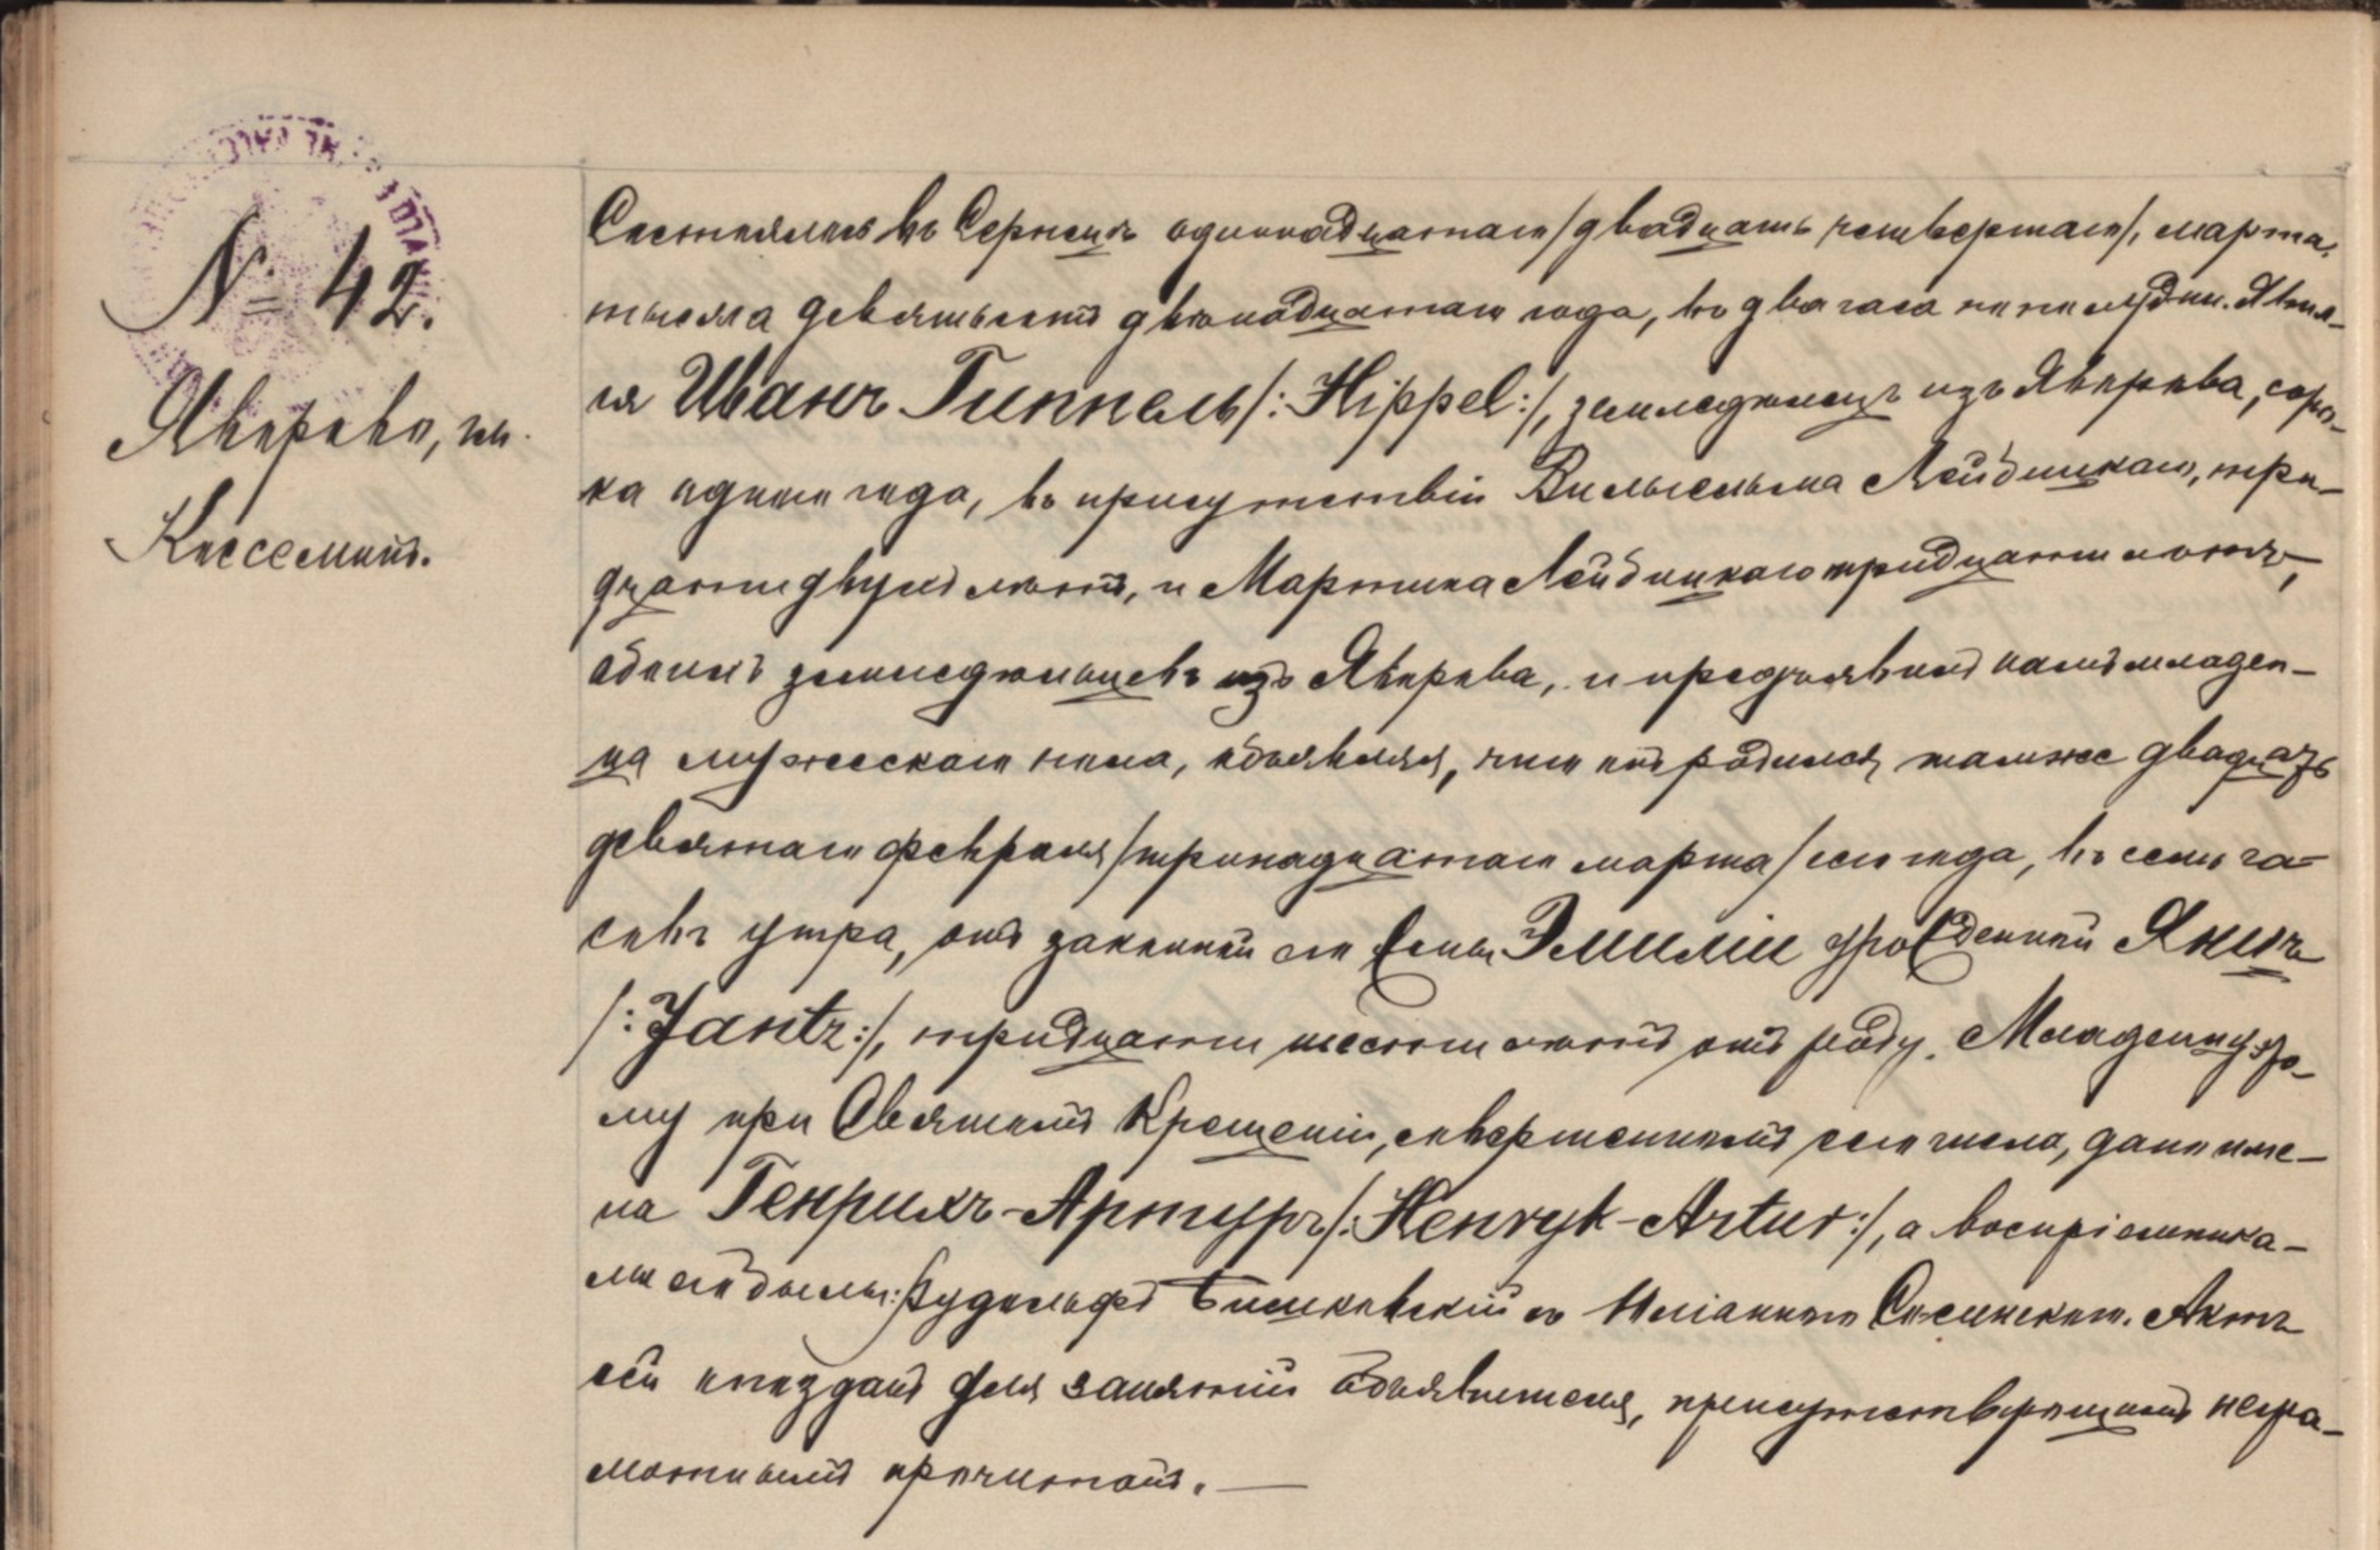 № 42.
Яворово, гм.
Коссемин.
Состоялось въ Сероцкѣ одиннадцатаго /двадцать четвертаго/, марта,
тысяча девятьсотъ двѣнадцатаго года, въ два часа по полудни. Явил-
ся Иванъ Гиппель /: Hippel :/, земледѣлецъ изъ Яворова, соро-
ка одного года, въ присутствіи Вильгельма Лейбницкаго, три-
дцати двухъ лѣтъ, и Мартина Лейбницкаго тридцати лѣтъ,
обоихъ земледѣльцевъ изъ Яворова, и предъявилъ намъ младен-
ца мужескаго пола, объявляя, что онъ родился тамже двадцать
девятаго февраля /тринадцатаго марта/ сего года, въ семь ча-
совъ утра, отъ законной его жены Эмиліи урожденной Янцъ
/: Jantz :/, тридцати шести лѣтъ отъ роду. Младенцу се-
му при Святомъ Крещеніи, совершенномъ сего числа, даны име-
на Генрихъ-Артуръ /: Henryk-Artur :/, а воспріемника-
ми его были: Рудольфъ и Юліанна Акть
сей опозданъ для занятій объявителя, присутствующимъ негра-
мотнымъ прочитанъ. —